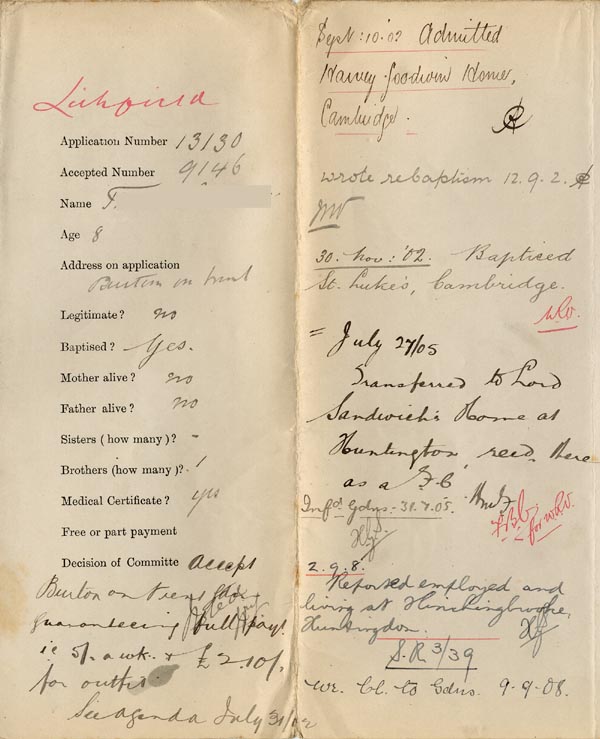 Lichfield
Application Number 13130
Accepted Number 9146
Name F.
Age 8
Address on application
Burton on Trent
Legitimate? no
Baptised? Yes.
Mother alive? no
Father alive? no
Sisters (how many)? -
Brothers (how many)? 1
Medical Certificate? yes
Free or part payment
Decision of Committe Accept
Burton on Trent Gdns
guaranteeing full payt
ie 5/. a wk. & £2.10/.
for outfit
See agenda July 31/02
Sept: 10. 02 Admitted
Harvey Goodwin Home,
Cambridge.
wrote re baptism 12. 9. 2.
30. Nov: '02. Baptised
St. Luke's, Cambridge.
= July 27/05
Transferred to Lord
Sandwich's Home at
Huntington recd. there
as a "F.C"
Infd. Gdns. - 31.7.05.
F.B.C.
for
2. 9. 8.
Reported employed and
living at Hinchingbrooke,
Huntingdon.
S.R. 3/39
Wr. Cl. to Gdns. 9-9-08.